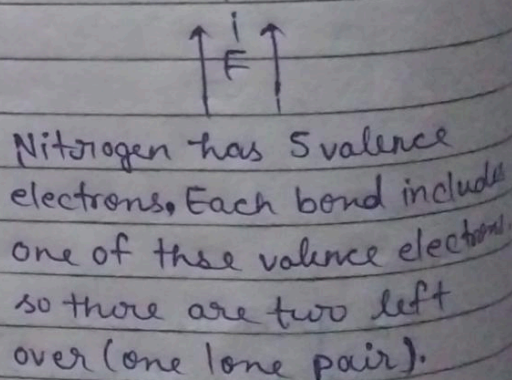 F
Nitrogen has 5 valence
electrons. Each bond include
one of thse valence electrons.
so there are two left
over (one lone pair).